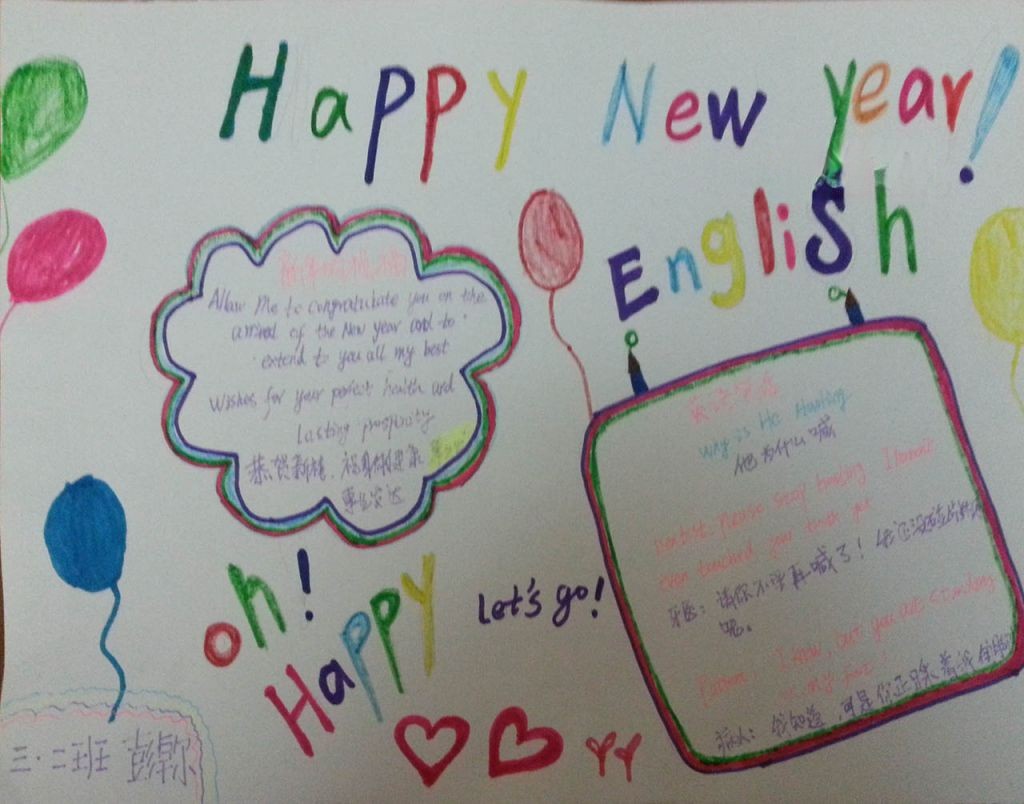 Happy New year!
English
Allow Me to congratulate you on the
arrival of the New year and to
extend to you all my best
wishes for your perfect health and
lasting prosperity
恭贺新禧、祝身体健康
事业发达
Why is He
他为什么喊
Dentist: Please stop
even touched your tooth yet
牙医：请你不要再喊了！我还没碰你的牙
呢。
I know, but you are standing
on my foot!
病人：我知道，可是你正踩着我的脚
oh!
Happy
Let's go!
三·二班